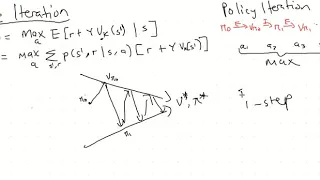 Iteration
= max_a E[r + γ V_k(s') | s]
= max_a Σ_{s',r} p(s', r | s, a) [r + γ V_k(s')]
V_{π0}
π_0
π_1
V*, π*
Policy Iteration
π_0 → V_{π0} → π_1 → V_{π1}
a_1 a_2 a_3
max
1-step